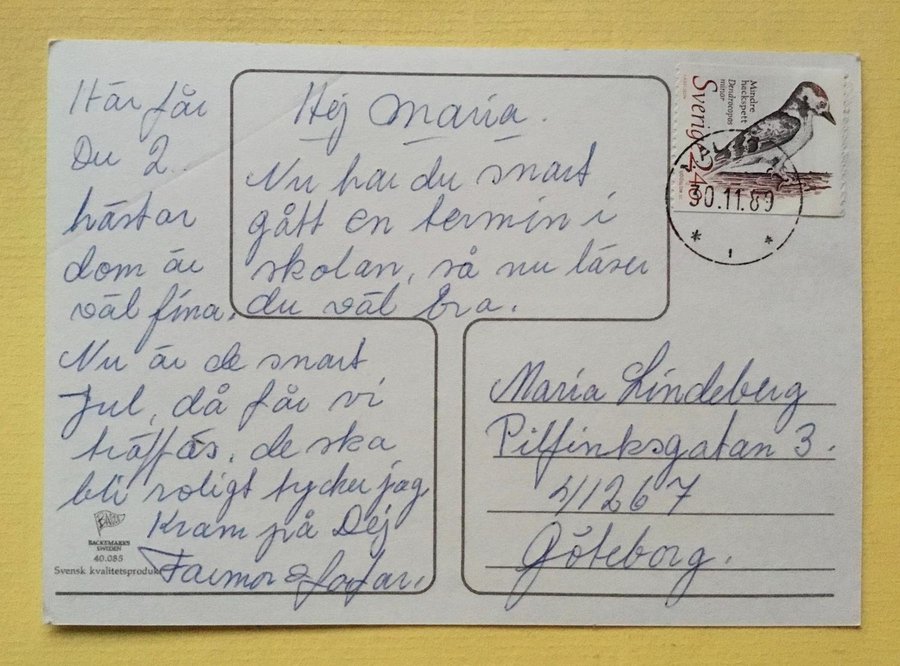 Hej Maria.
Nu har du snart
gått en termin i
skolan, så nu läser
du väl bra.
Här får
Du 2
hästar
dom är
väl fina.
Nu är de snart
Jul, då får vi
träffas, de ska
bli roligt tycker jag
Kram på Dej
Farmor & farfar.
BACKEMARKS
SWEDEN
40.085
Svensk kvalitetsprodukt
Sverige 240
Mindre
hackspett
Dendrocopos
minor
30.11.89
* 1 *
Maria Lindeberg
Pilfinksgatan 3.
41267
Göteborg.